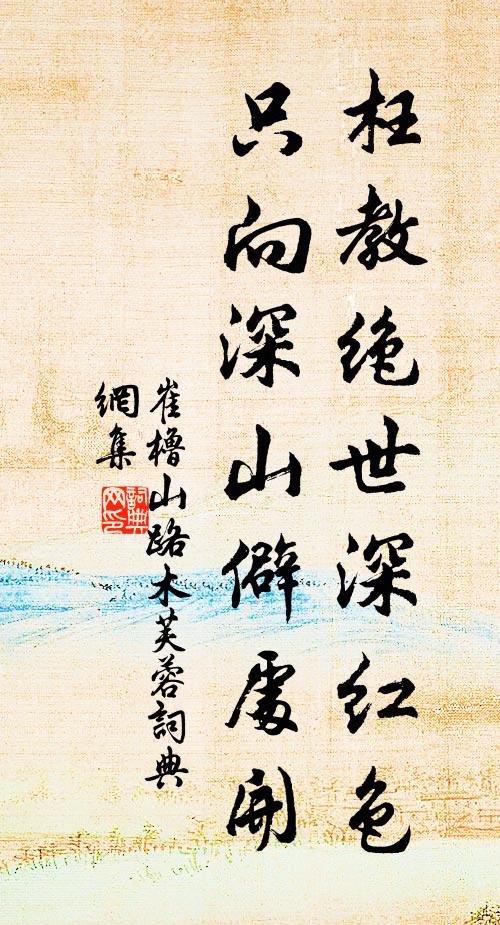 枉教绝世深红色
只向深山僻處开
崔橹山路木芙蓉詞典
網集
詞典
网印